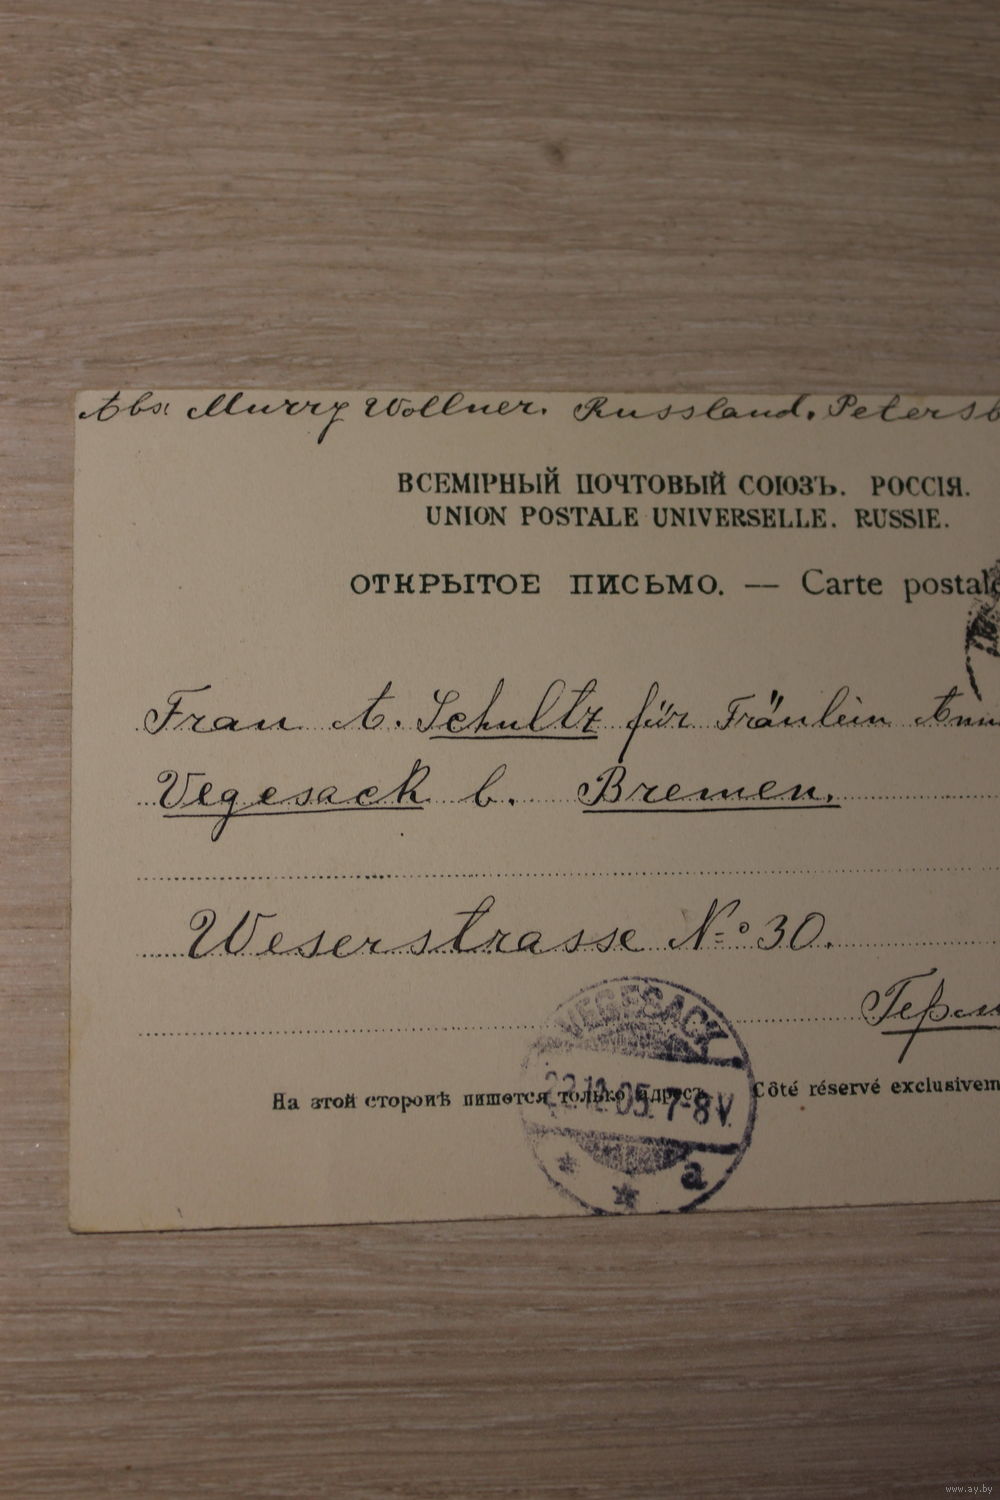 Abs: Murry Wollner. Russland. Petersb
ВСЕМІРНЫЙ ПОЧТОВЫЙ СОЮЗЪ. РОССІЯ.
UNION POSTALE UNIVERSELLE. RUSSIE.
ОТКРЫТОЕ ПИСЬМО. — Carte postale
Frau A. Schultz für Fräulein Ann
Vegesack b. Bremen.
Weserstrasse No 30.
Герм
VEGESACK
22.12.05.7-8V.
a
На этой сторонѣ пишется только адресъ. Côté réservé exclusivem
www.ay.by